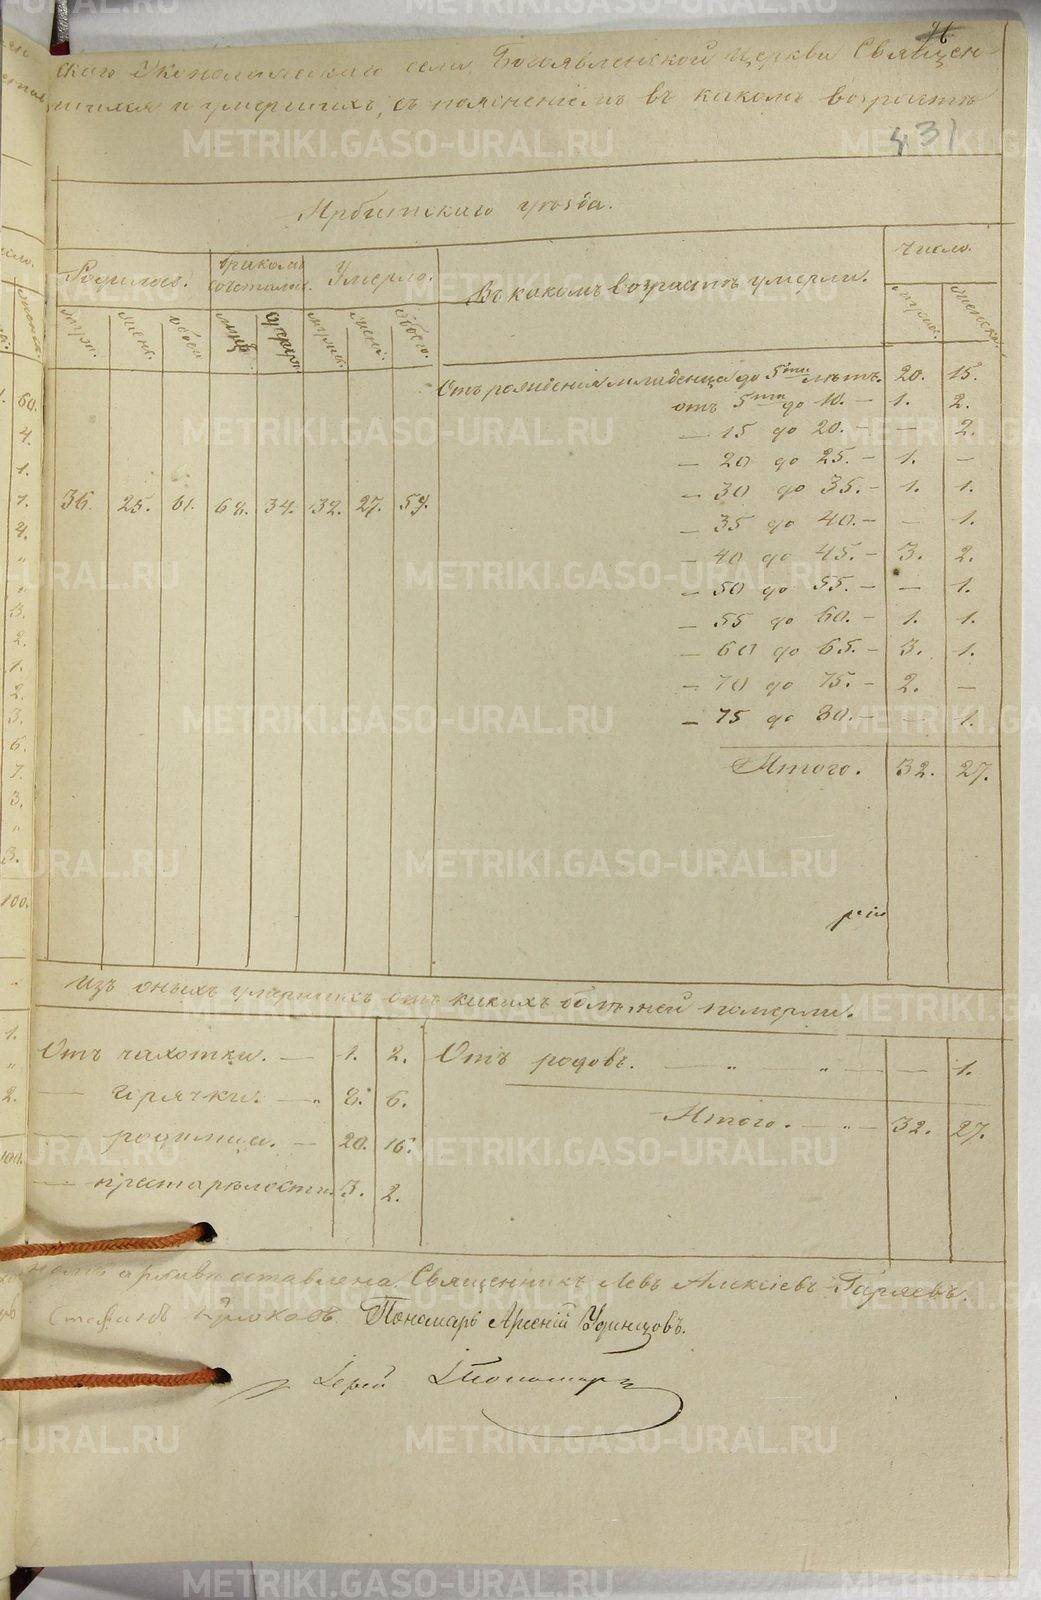 76
скаго Экономическаго села, Богоявленской церкви Священ-
шихся и умершихъ, съ поясненіемъ въ какомъ возрастѣ
431
Ирбитскаго уѣзда.
Родилось. Бракомъ сочеталось. Умерло. Въ какомъ возрастѣ умерли. Число.
муж. женс. обоего муж. женс. обоего. мужск. женска.
Отъ рожденія младенца до 5ти лѣтъ. 20. 15.
отъ 5ти до 10. — 1. 2.
— 15 до 20. — — 2.
— 20 до 25. — 1. —
— 30 до 35. — 1. 1.
36. 25. 61. 68. 34. 32. 27. 59.
— 35 до 40. — — 1.
— 40 до 45. — 3. 2.
— 50 до 55. — — 1.
— 55 до 60. — 1. 1.
— 60 до 65. — 3. 1.
— 70 до 75. — 2. —
— 75 до 80. — — 1.
Итого. 32. 27.
Изъ оныхъ умершихъ отъ какихъ болѣзней померли.
Отъ чахотки. — 1. 2. Отъ родовъ. — „ — „ — — 1.
— горячки. — „ 8. 6.
Итого. — „ — 32. 27.
— родимца. — 20. 16.
— престарѣлости. 3. 2.
архивѣ оставлена. Священникъ Левъ Алексіевъ Гаряевъ.
Стефанъ Пономарь Арсеній Удинцовъ.
Іерей
METRIKI.GASO-URAL.RU